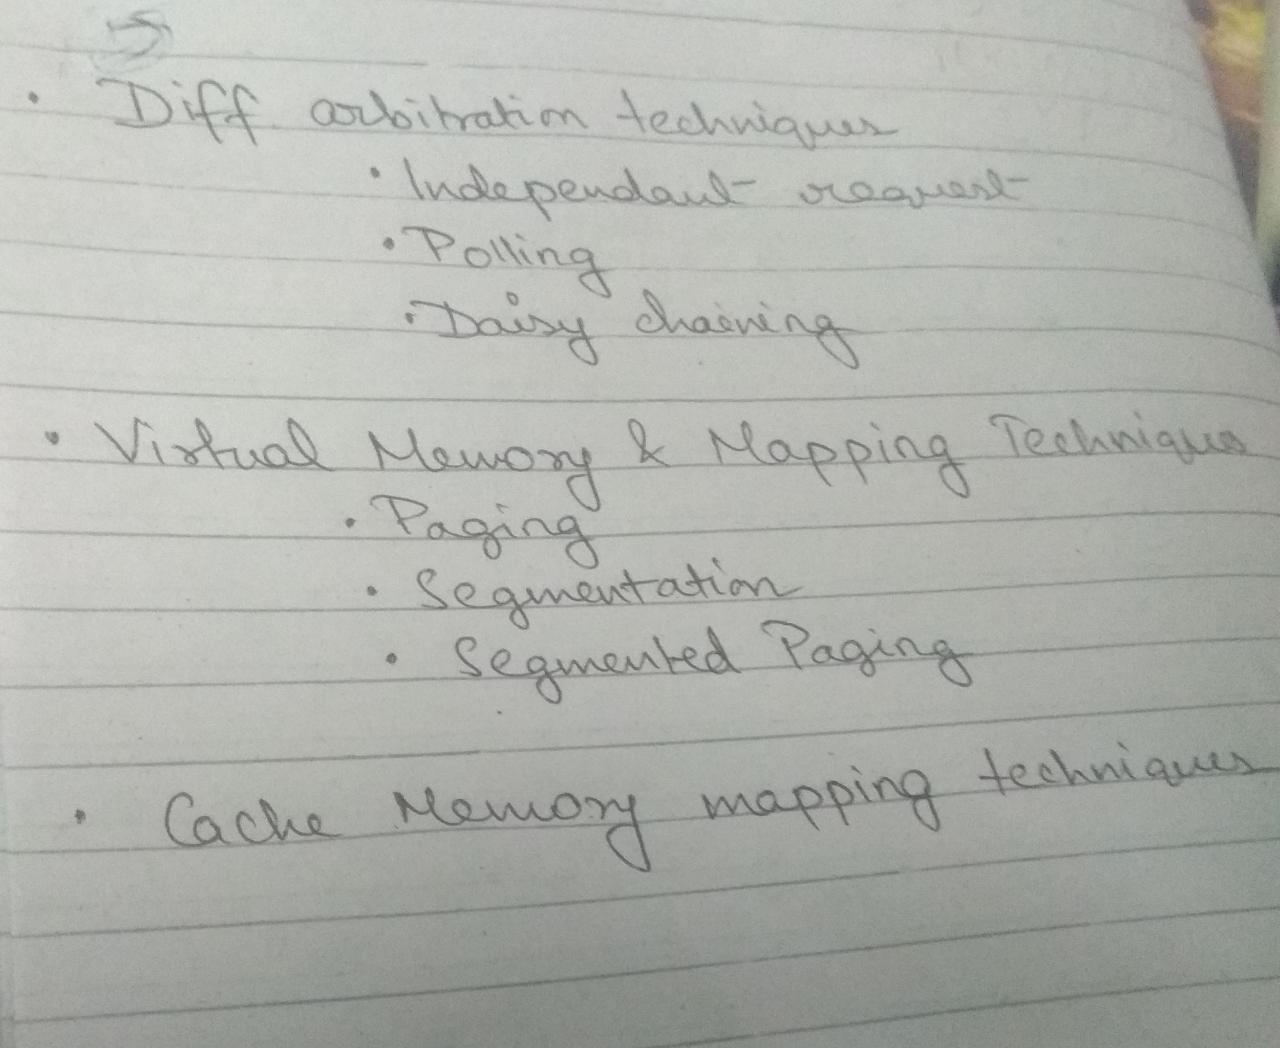 5
• Diff arbitration techniques
• Independant request
• Polling
• Daisy chaining
• Virtual Memory & Mapping Techniques
• Paging
• Segmentation
• Segmented Paging
• Cache Memory mapping techniques